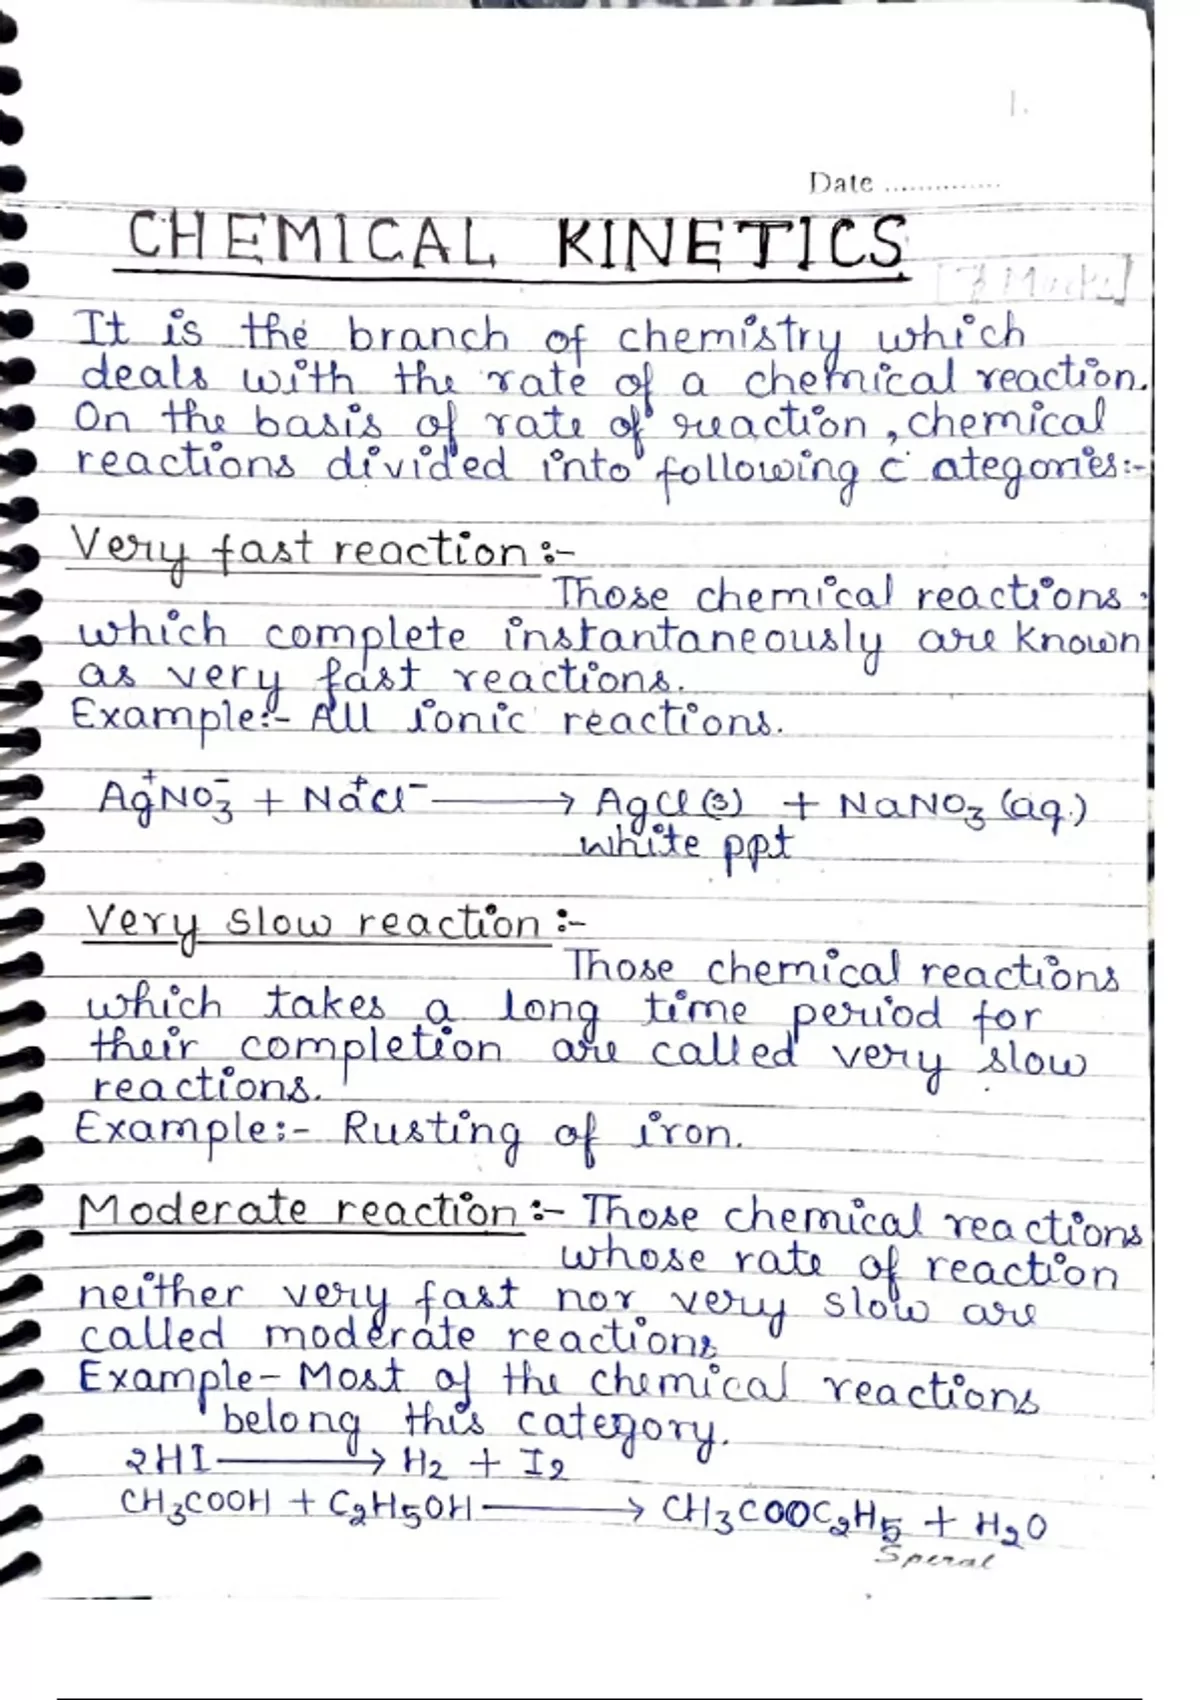 1.
Date ..............
CHEMICAL KINETICS
It is the branch of chemistry which
deals with the rate of a chemical reaction.
On the basis of rate of reaction, chemical
reactions divided into following c ategories:-
Very fast reaction:-
Those chemical reactions
which complete instantaneously are known
as very fast reactions.
Example:- All ionic reactions.
Ag⁺NO₃⁻ + Na⁺Cl⁻ ⟶ AgCl(s) + NaNO₃(aq.)
white ppt
Very slow reaction:-
Those chemical reactions
which takes a long time period for
their completion are called very slow
reactions.
Example:- Rusting of iron.
Moderate reaction:- Those chemical reactions
whose rate of reaction
neither very fast nor very slow are
called moderate reactions
Example- Most of the chemical reactions
belong this category.
2HI ⟶ H₂ + I₂
CH₃COOH + C₂H₅OH ⟶ CH₃COOC₂H₅ + H₂O
Speral